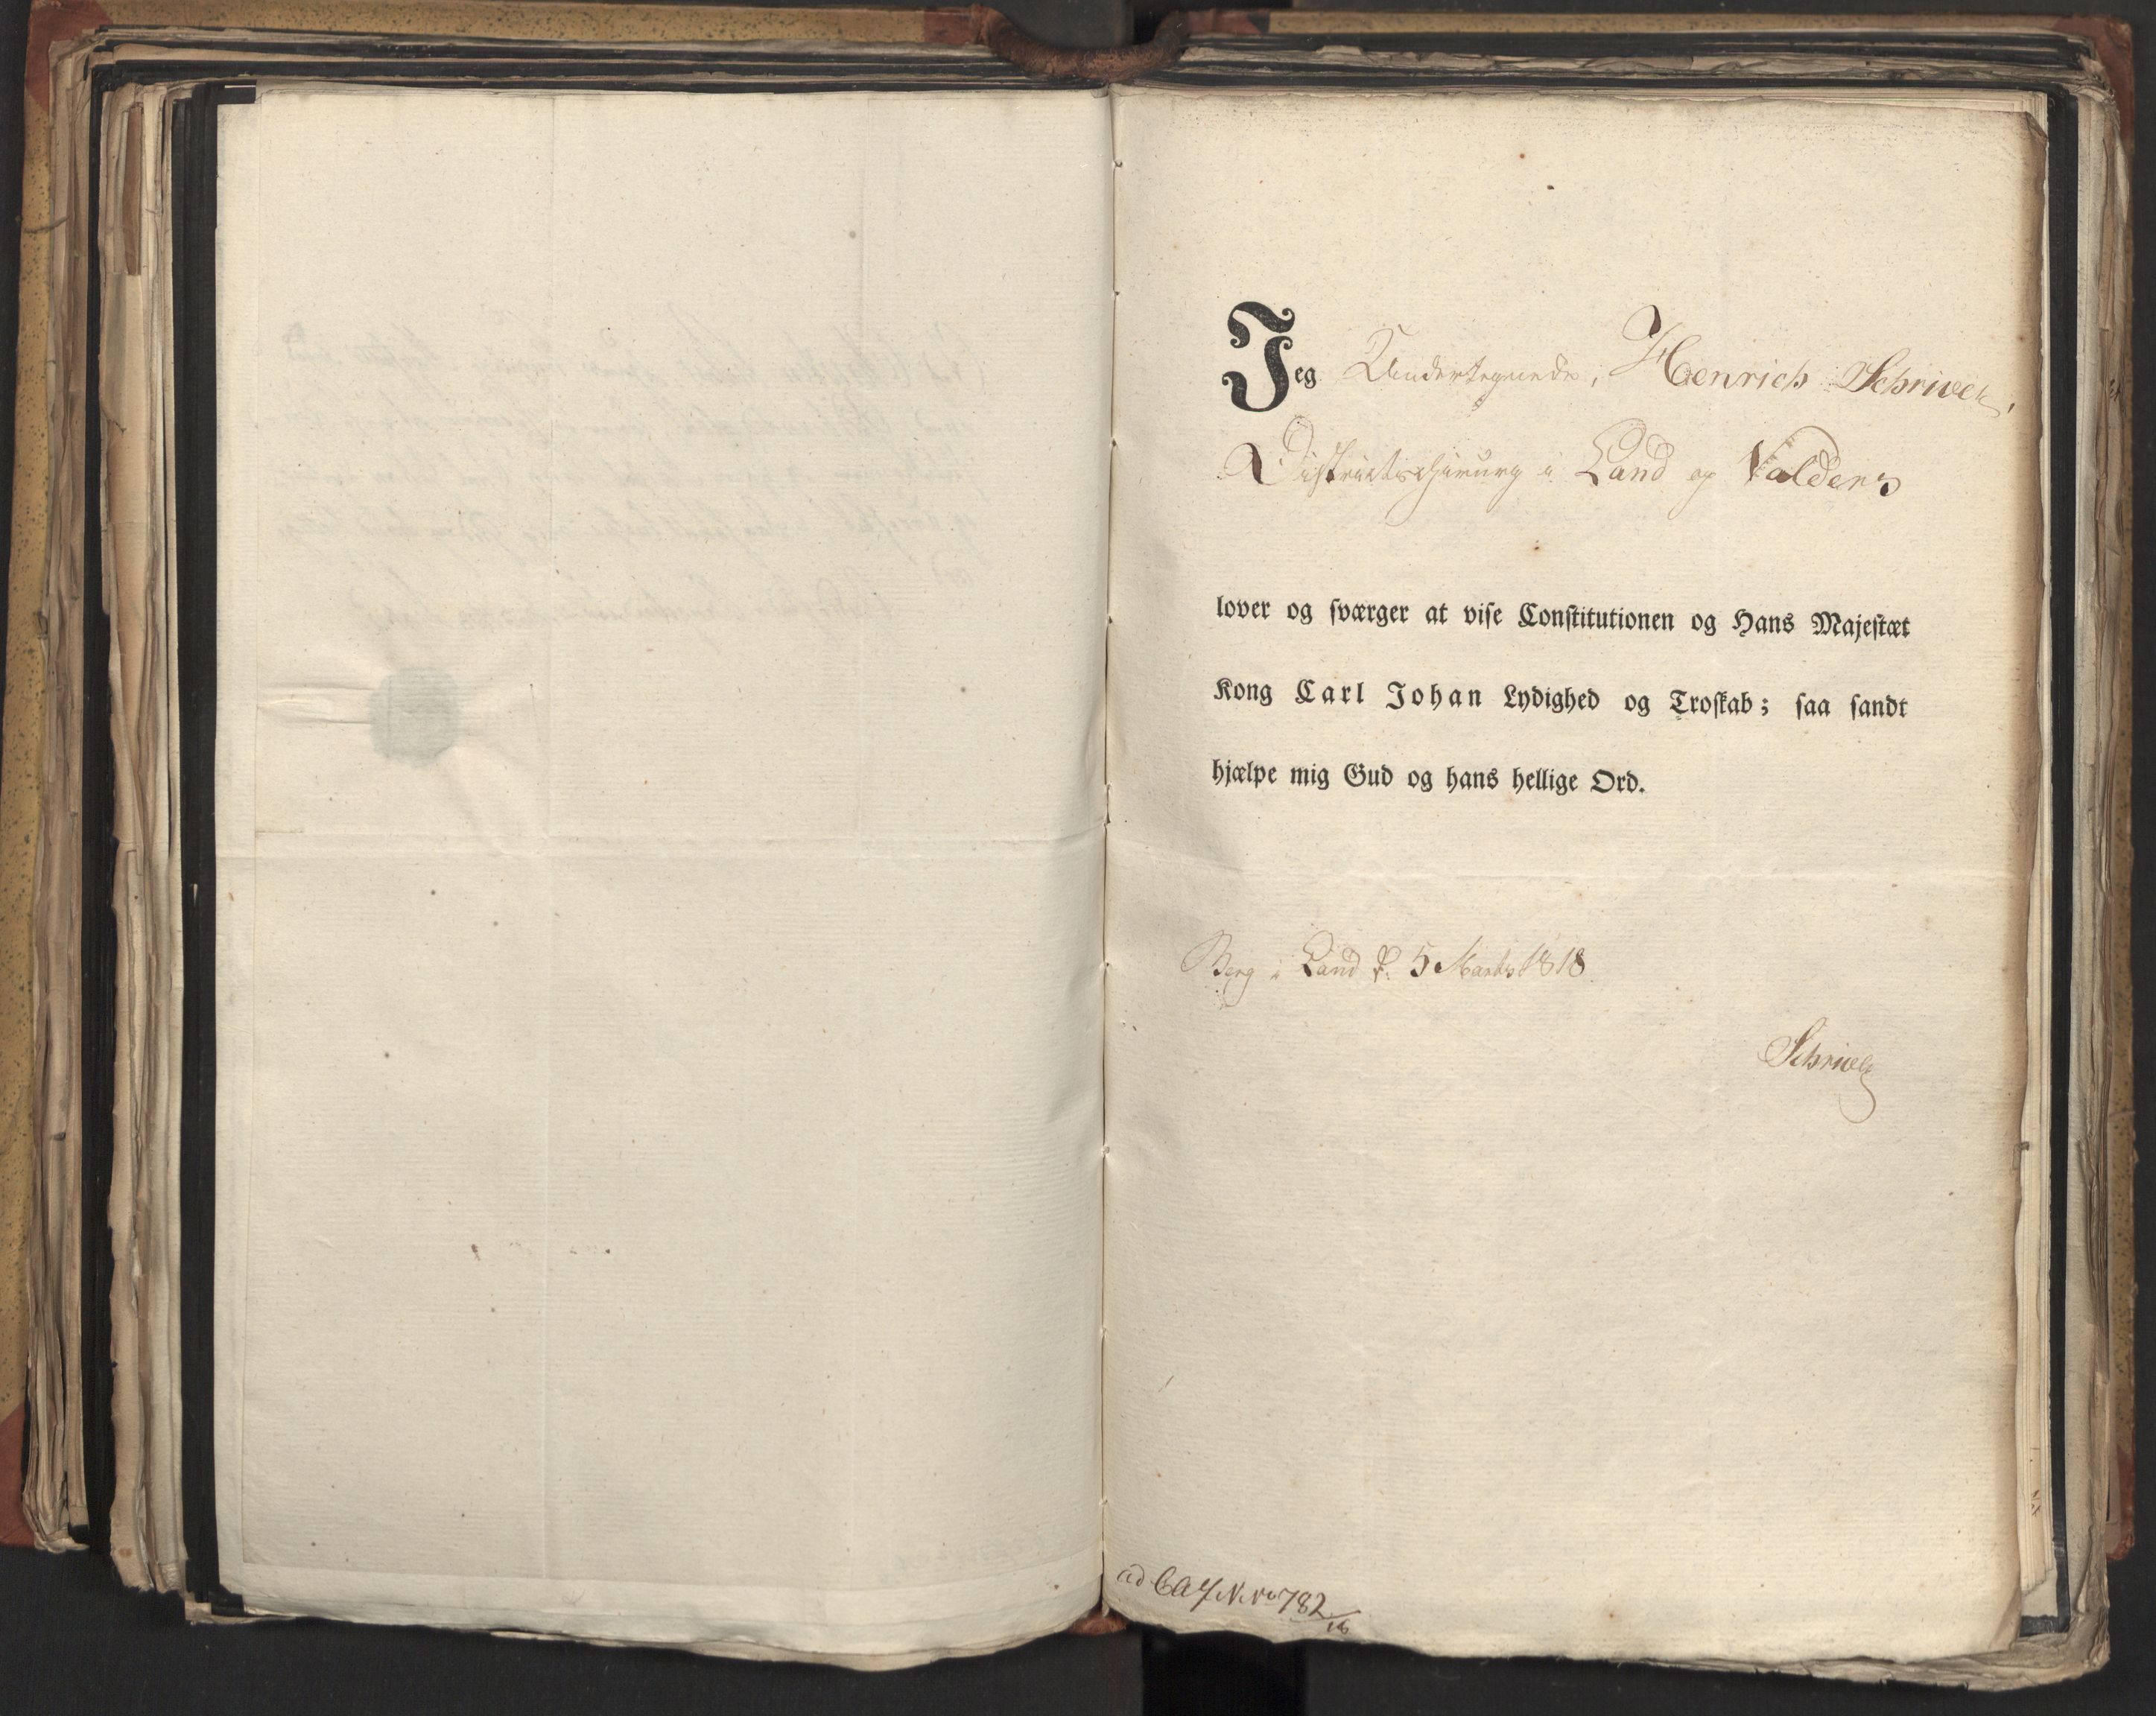 Jeg Undertegnede, Henrich Schriver,
Districtschirurg i Land og Valders
lover og sværger at vise Constitutionen og Hans Majestæt
Kong Carl Johan Lydighed og Troskab; saa sandt
hjælpe mig Gud og hans hellige Ord.
Berg i Land d. 5 Marts 1818.
Schriver
ad No 782/18